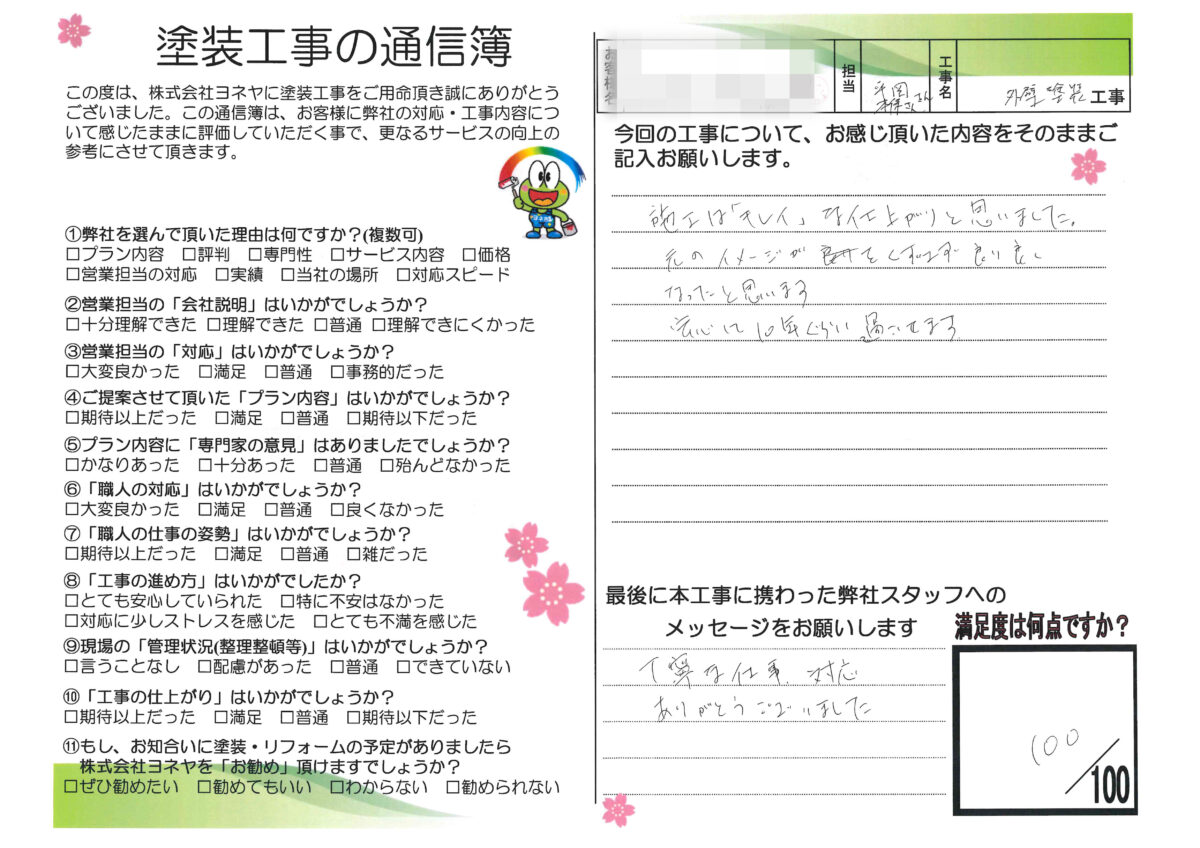 塗装工事の通信簿
この度は、株式会社ヨネヤに塗装工事をご用命頂き誠にありがとう
ございました。この通信簿は、お客様に弊社の対応・工事内容につ
いて感じたままに評価していただく事で、更なるサービスの向上の
参考にさせて頂きます。
①弊社を選んで頂いた理由は何ですか？(複数可)
□プラン内容 □評判 □専門性 □サービス内容 □価格
□営業担当の対応 □実績 □当社の場所 □対応スピード
②営業担当の「会社説明」はいかがでしょうか？
□十分理解できた □理解できた □普通 □理解できにくかった
③営業担当の「対応」はいかがでしょうか？
□大変良かった □満足 □普通 □事務的だった
④ご提案させて頂いた「プラン内容」はいかがでしょうか？
□期待以上だった □満足 □普通 □期待以下だった
⑤プラン内容に「専門家の意見」はありましたでしょうか？
□かなりあった □十分あった □普通 □殆んどなかった
⑥「職人の対応」はいかがでしょうか？
□大変良かった □満足 □普通 □良くなかった
⑦「職人の仕事の姿勢」はいかがでしょうか？
□期待以上だった □満足 □普通 □雑だった
⑧「工事の進め方」はいかがでしたか？
□とても安心していられた □特に不安はなかった
□対応に少しストレスを感じた □とても不満を感じた
⑨現場の「管理状況(整理整頓等)」はいかがでしょうか？
□言うことなし □配慮があった □普通 □できていない
⑩「工事の仕上がり」はいかがでしょうか？
□期待以上だった □満足 □普通 □期待以下だった
⑪もし、お知合いに塗装・リフォームの予定がありましたら
株式会社ヨネヤを「お勧め」頂けますでしょうか？
□ぜひ勧めたい □勧めてもいい □わからない □勧められない
お客様名
担当
工事名
外壁塗装工事
今回の工事について、お感じ頂いた内容をそのままご
記入お願いします。
施工は「キレイ」な仕上がりと思いました。
元のイメージが をくずさず 良り良く
なったと思います
安心して10年ぐらい過ごせます
最後に本工事に携わった弊社スタッフへの
メッセージをお願いします
丁寧な仕事、対応
ありがとうございました
満足度は何点ですか？
100
/100